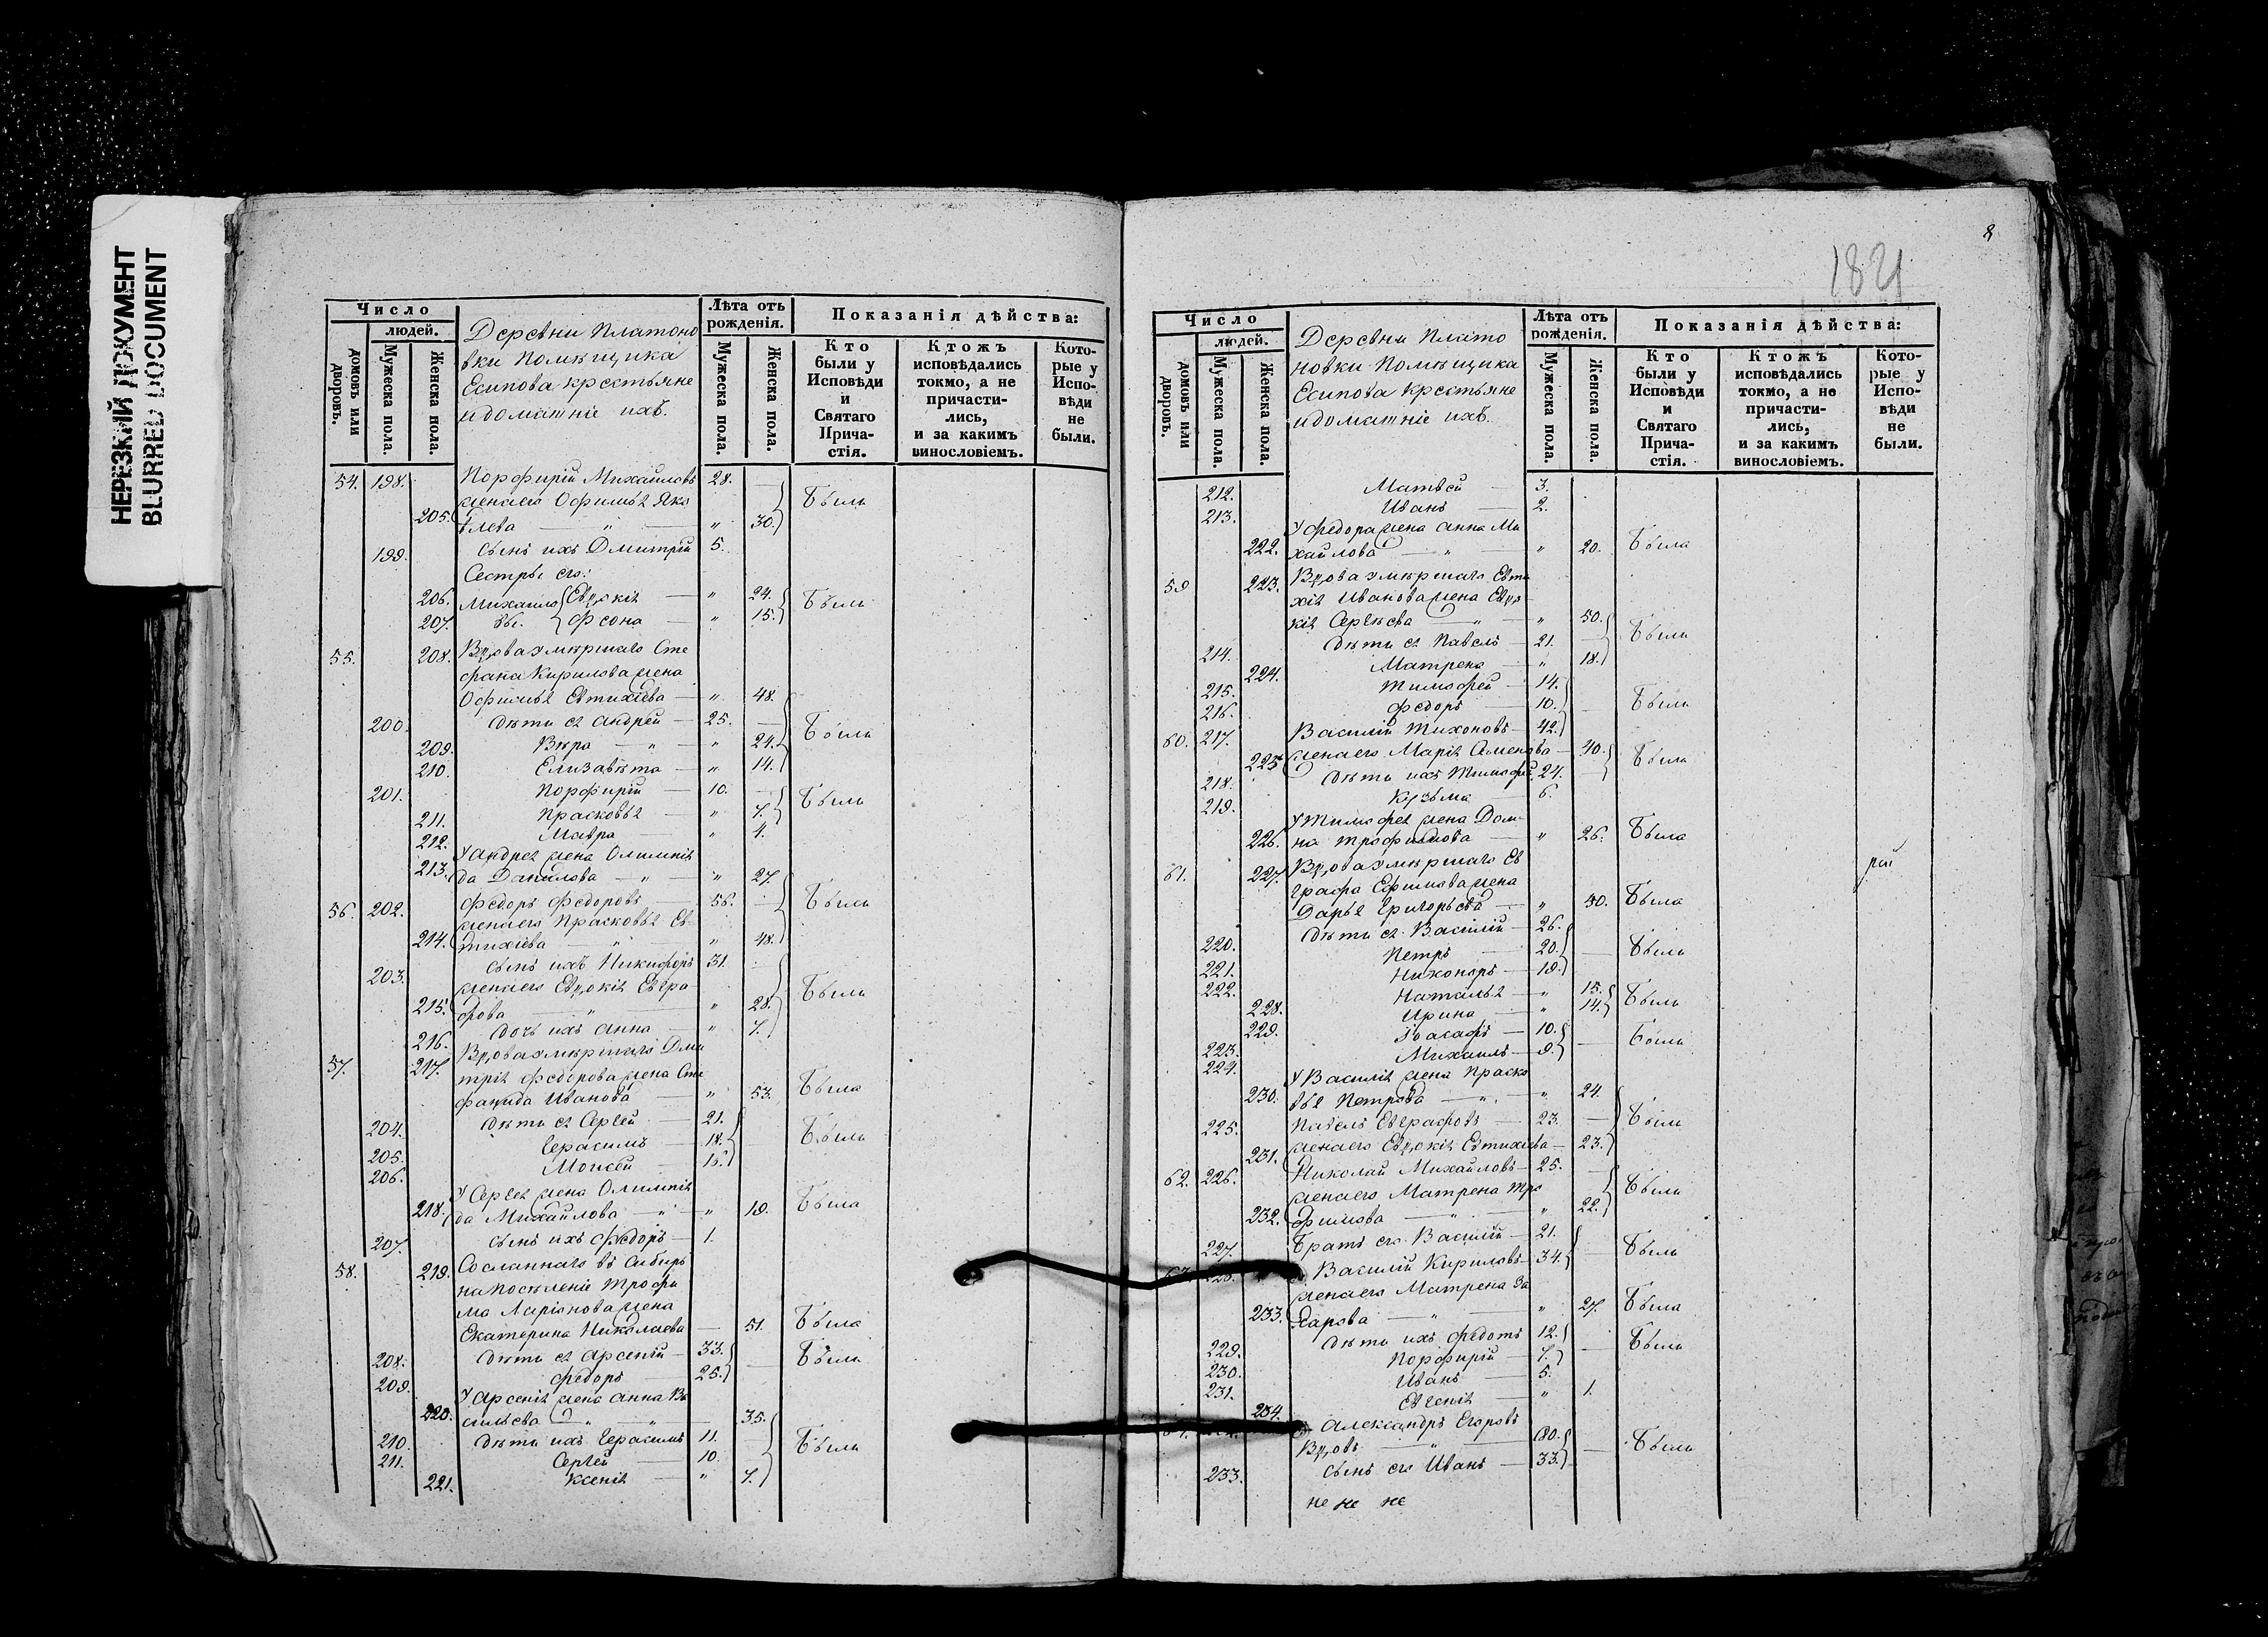 НЕРЕЗКИЙ ДОКУМЕНТ
BLURRED DOCUMENT
Число
людей.
домовъ или дворовъ.
Мужеска пола.
Женска пола.
Деревни Платоно
вки Помѣщика
Есипова крестьяне
и домашніе ихъ.
Лѣта отъ рожденія.
Мужеска пола.
Женска пола.
Показанія дѣйства:
Кто были у Исповѣди и Святаго Прича-стія.
Ктожъ исповѣдались токмо, а не причасти-лись, и за какимъ винословіемъ.
Кото-рые у Испо-вѣди не были.
54. 198. Порфирій Михайловъ 28.
жена его Офимья Яко Были
205. влева — " — " 30.
199. сынъ ихъ Дмитрій 5.
Сестры его:
206. Михайло Евдокія — " 24. Были
207. вы. Фсона — " 15.
55. 208. Вдова умершаго Сте
фана Кирилова жена
Офимья Евтихіева — " 48.
200. дѣти ея Андрей — 25. — Были
209. Вѣра — " — " 24.
210. Елизавѣта — " 14.
201. Порфирій — 10. — Были
211. Прасковья — " 7.
212. Мавра " 4.
У Андрея жена Олимпія
213. да Данилова — " — " 27.
56. 202. Федоръ Федоровъ — 56. — Были
жена его Прасковья Ев-
214. тихіева — " — " 48.
203. сынъ ихъ Никифоръ 31.
жена его Евдокія Евгра Были
215. фова — " — " 28.
216. дочь ихъ Анна — " 7.
57. 217. Вдова умершаго Дми
трія Федорова жена Сте
фанида Иванова — " 53. Была
204. дѣти ея Сергѣй — 21.
205. Герасимъ — 18. Были
206. Моисей — 15.
У Сергея жена Олимпія
218. да Михайлова — " — " 19. Была
207. сынъ ихъ Федоръ — 1.
58. 219. Сосланнаго въ Сибирь
на поселеніе Трофи
ма Ларіонова жена
Екатерина Николаева — 51. Была
208. дѣти ея Арсеній — 33. — Были
209. Федоръ 25.
У Арсенія жена Анна Ва
220. сильева — " — " — 35.
210. дѣти ихъ Герасимъ 11. Были
211. Сергѣй — 10.
221. Ксенія — " 7.
8
1821
Число
людей.
домовъ или дворовъ.
Мужеска пола.
Женска пола.
Деревни Плато
новки Помѣщика
Есипова крестьяне
и домашніе ихъ.
Лѣта отъ рожденія.
Мужеска пола.
Женска пола.
Показанія дѣйства:
Кто были у Исповѣди и Святаго Прича-стія.
Ктожъ исповѣдались токмо, а не причасти-лись, и за какимъ винословіемъ.
Кото-рые у Испо-вѣди не были.
212. Матвей — 3.
213. Иванъ — 2.
У Федора жена Анна Ми
222. хайлова — " — " 20. Была
59 223. Вдова умершаго Евти
хія Иванова жена Евдо
кія Сергѣева — " — " 50.
214. дѣти ея Павелъ — 21. — Были
224. Матрена — " 18.
215. Тимофей — 14.
216. Федоръ — 10. — Были
60. 217. Василій Тихоновъ — 42.
225 жена его Марія — 40. Были
218. дѣти ихъ Тимофей 24. —
219. Кузьма 6.
У Тимофея жена Дом-
226. на Трофимова — " 26. Была
61. 227. Вдова умершаго Ев
графа Ефимова жена
Дарья Григорьева — " 50. Была
220. дѣти ея Василій — 26.
221. Петръ — 20. — Были
222. Никоноръ — 19.
228. Наталья — " 15. Были
229. Ирина — " 14.
223. Іоасафъ — 10. — Были
224. Михаилъ — 9.
У Василія жена Праско
230. вья Петрова — " — " 24.
225. Павелъ Евграфовъ — 23. — Были
231. жена его Евдокія Евтихіева — 23.
62. 226. Николай Михайловъ — 25. —
жена его Матрена Тро Были
232. фимова — " — " 22.
227. Братъ его Василій — 21.
Василій Кириловъ — 34. — Были
жена его Матрена За
233. харова — " — " 27. Была
229. дѣти ихъ Федотъ 12. Были
230. Порфирій — 7. —
231. Иванъ — 5.
234. Евгенія — " 1.
Александръ Егоровъ
Вдовъ — " — 80. — Были
233. сынъ его Иванъ — 33.
не не не